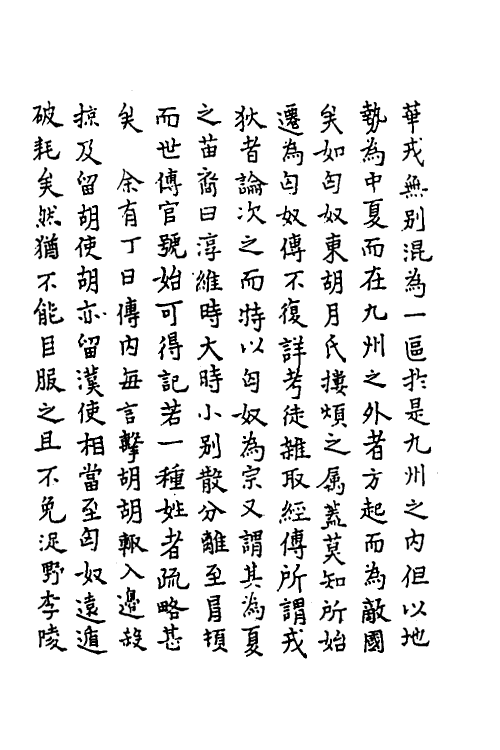 華戎無别混為一區扵是九州之内但以地
勢為中夏而在九州之外者方起而為敵國
矣如匈奴東胡月氏摟煩之属葢莫知所始
遷為匈奴傳不復詳考徒雜取經傳所謂戎
狄者論次之而特以匈奴為宗又謂其為夏
之苗裔曰淳維時大時小别散分離至冐頓
而世傳官號始可得記若一種姓者疏略甚
矣　余有丁曰傳内每言擊胡胡輙入邊殺
掠及留胡使胡亦留漢使相當至匈奴遠遁
破耗矣然猶不能目服之且不免浞野李陵